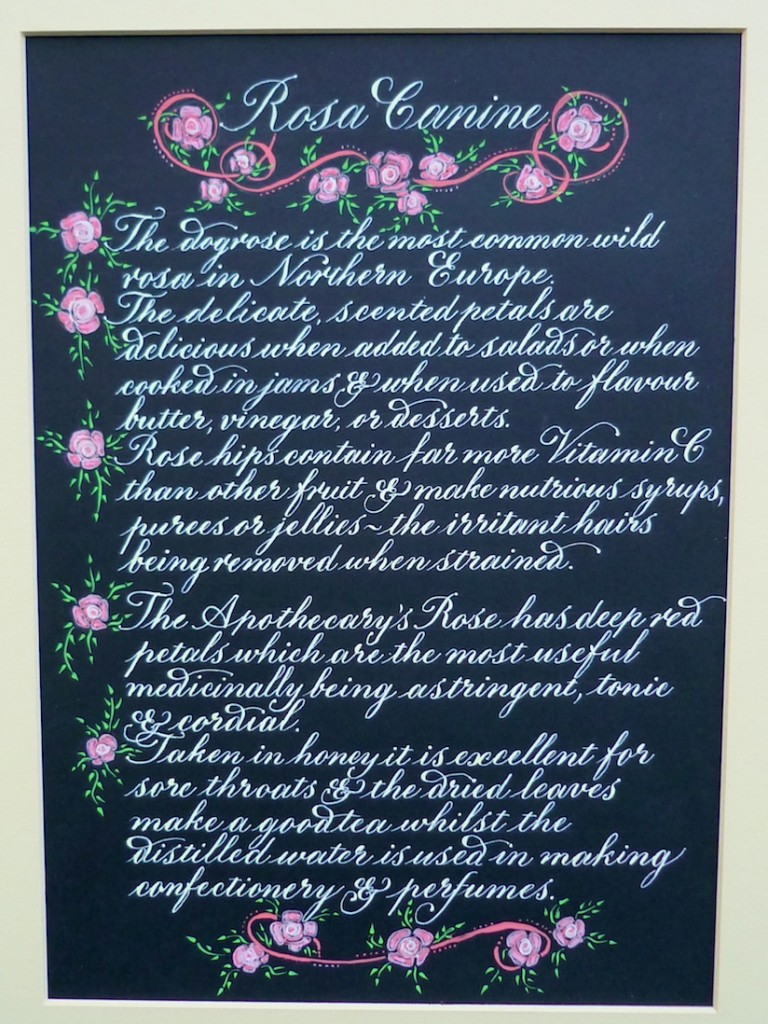 Rosa Canine
The dogrose is the most common wild
rosa in Northern Europe.
The delicate, scented petals are
delicious when added to salads or when
cooked in jams & when used to flavour
butter, vinegar, or desserts.
Rose hips contain far more Vitamin C
than other fruit & make nutrious syrups,
purees or jellies ~ the irritant hairs
being removed when strained.
The Apothecary's Rose has deep red
petals which are the most useful
medicinally being astringent, tonic
& cordial.
Taken in honey it is excellent for
sore throats & the dried leaves
make a good tea whilst the
distilled water is used in making
confectionery & perfumes.